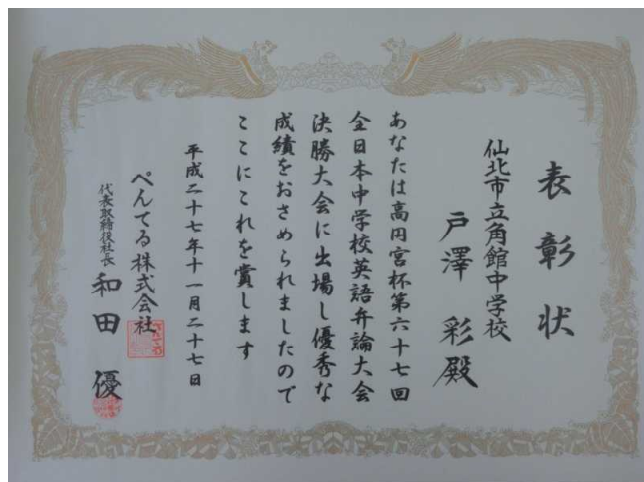 表彰状
仙北市立角館中学校
戸澤彩殿
あなたは高円宮杯第六十七回
全日本中学校英語弁論大会
決勝大会に出場し優秀な
成績をおさめられましたので
ここにこれを賞します
平成二十七年十一月二十七日
ぺんてる株式会社
代表取締役社長 和田優